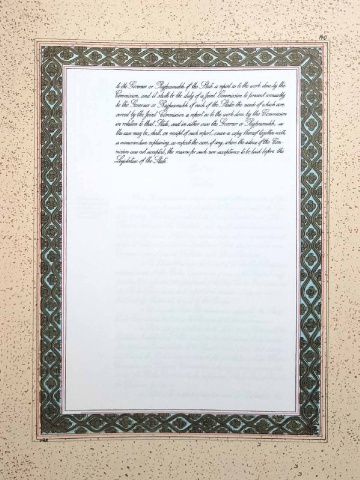 to the Governor or Rajpramukh of the State a report as to the work done by the
Commission, and it shall be the duty of a Joint Commission to present annually
to the Governor or Rajpramukh of each of the States the needs of which are
served by the Joint Commission a report as to the work done by the Commission
in relation to that State, and in either case the Governor or Rajpramukh, as
the case may be, shall, on receipt of such report, cause a copy thereof together with
a memorandum explaining, as respects the cases, if any, where the advice of the Com-
mission was not accepted, the reasons for such non-acceptance to be laid before the
Legislature of the State.